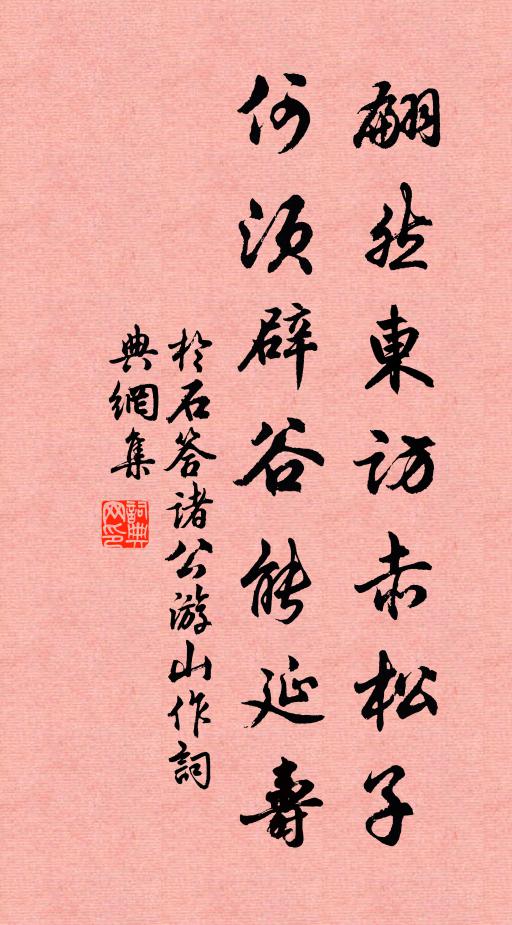 翩然東訪赤松子
何須辟谷能延壽
於石答諸公游山作詞
典網集
詞典網印